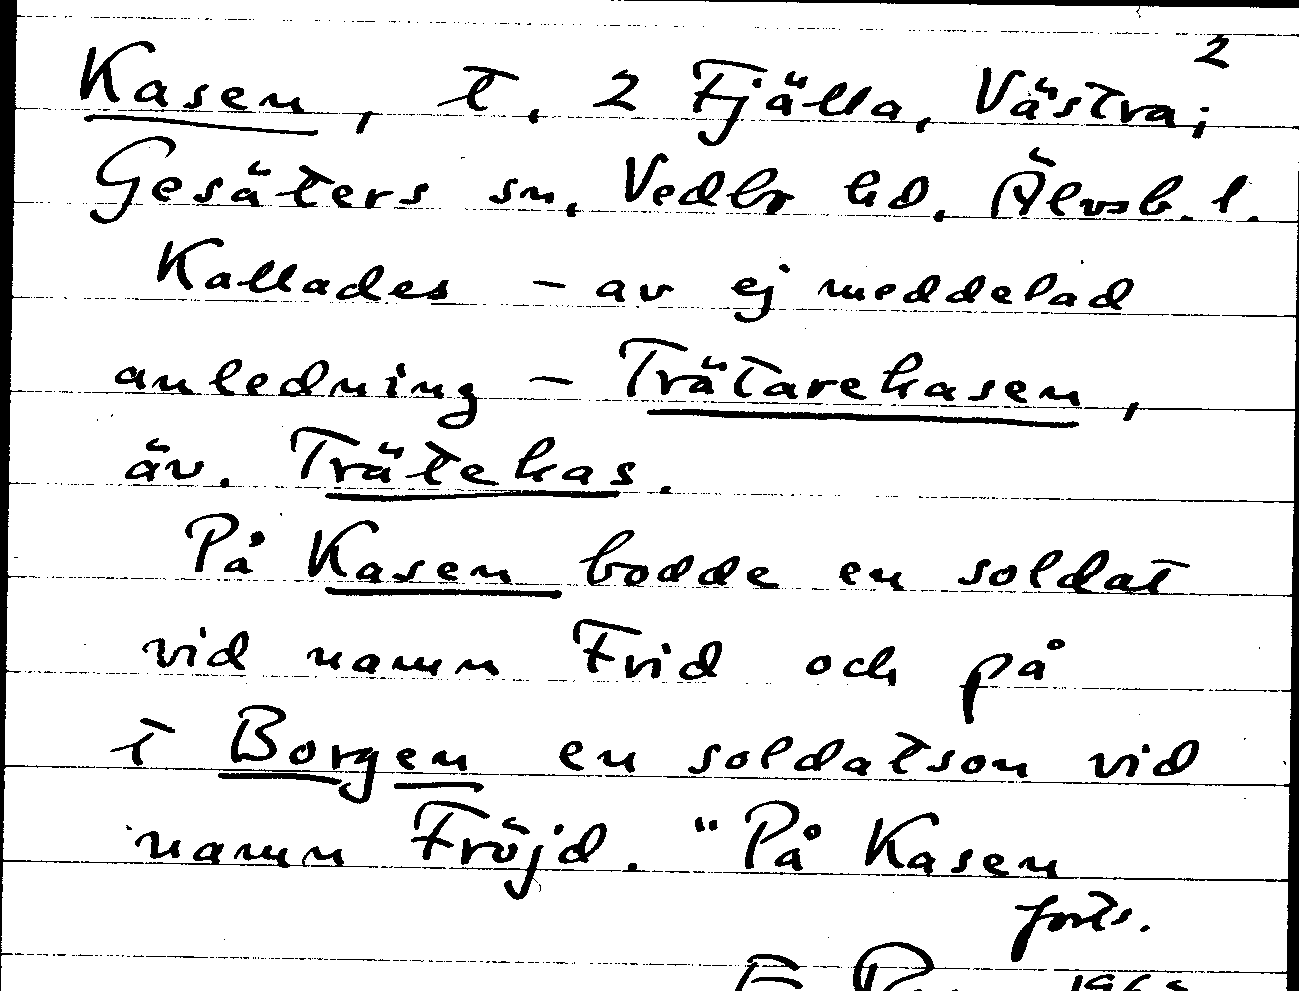 2
Kasen, t. 2 Fjälla, Västra;
Gesäters sn, Vedbr hd, Älvsb. l.
Kallades – av ej meddelad
anledning – Trätarekasen,
äv. Trätekas.
På Kasen bodde en soldat
vid namn Frid och på
t Borgen en soldatson vid
namn Fröjd. "På Kasen
forts.